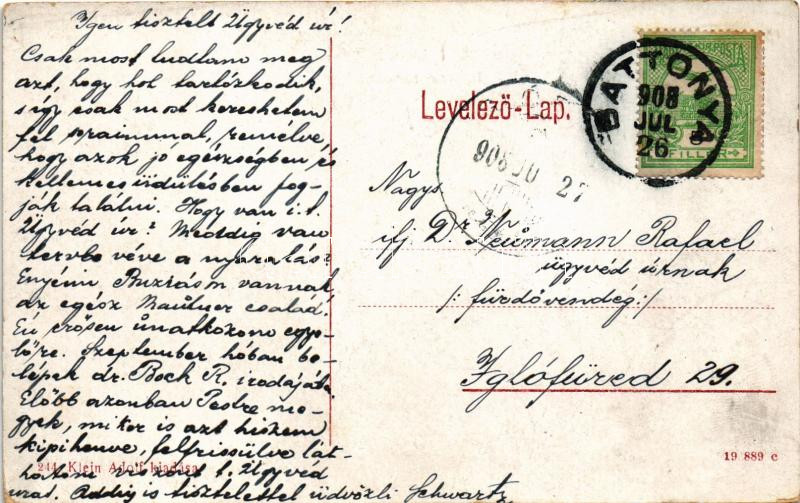 Igen tisztelt Ügyvéd úr!
Csak most tudtam meg
azt, hogy hol tartózkodik,
s így csak most kereshetem
fel soraimmal, remélve
hogy azok jó egészségben és
kellemes üdülésben fog-
ják találni. Hogy van i. t.
Ügyvéd úr? Meddig van
tervbe véve a nyaralás?
Enyéim Buziáson vannak
az egész család.
Én erősen únatkozom egye-
lőre. Szeptember hóban be-
lépek dr. Bock R. irodájába
Előbb azonban Pestre me-
gyek, mikor is azt hiszem
kipihenve, felfrissülve lát-
hatom viszont t. Ügyvéd
urat. Addig is tisztelettel üdvözli Schwartz
244 Klein Adolf kiadása
Levelező-Lap.
BATTONYA
908
JUL
26
FILLÉR
908 JU 27
Nagys.
ifj. Dr. Neumann Rafael
ügyvéd úrnak
/: fürdővendég :/
Iglófüred 29.
19 889 c